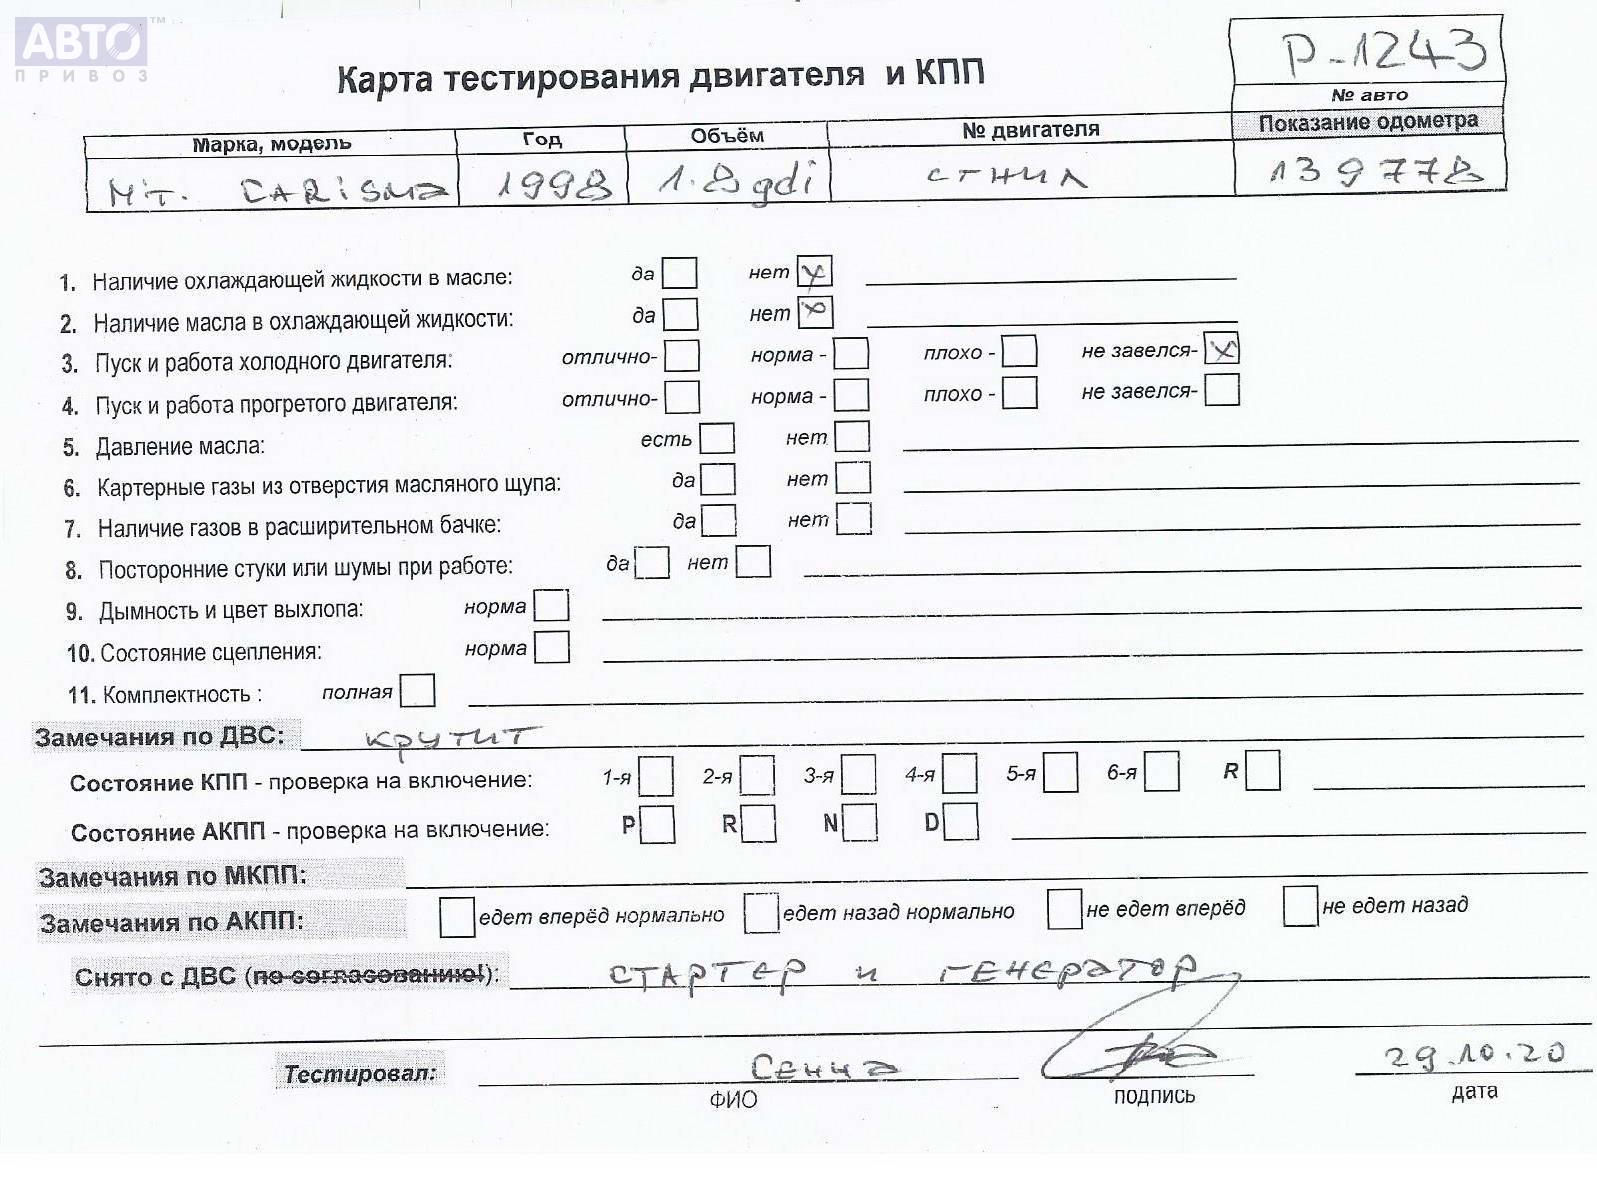 АВТО™
ПРИВОЗ
Р-1243
Карта тестирования двигателя и КПП
№ авто
Марка, модель Год Объём № двигателя Показание одометра
Mit. CARiSMa 1998 1.8 gdi сгнил 139778
1. Наличие охлаждающей жидкости в масле: да нет x
2. Наличие масла в охлаждающей жидкости: да нет x
3. Пуск и работа холодного двигателя: отлично- норма - плохо - не завелся- x
4. Пуск и работа прогретого двигателя: отлично- норма - плохо - не завелся-
5. Давление масла: есть нет
6. Картерные газы из отверстия масляного щупа: да нет
7. Наличие газов в расширительном бачке: да нет
8. Посторонние стуки или шумы при работе: да нет
9. Дымность и цвет выхлопа: норма
10. Состояние сцепления: норма
11. Комплектность : полная
Замечания по ДВС: крутит
Состояние КПП - проверка на включение: 1-я 2-я 3-я 4-я 5-я 6-я R
Состояние АКПП - проверка на включение: P R N D
Замечания по МКПП:
Замечания по АКПП: едет вперёд нормально едет назад нормально не едет вперёд не едет назад
Снято с ДВС (по согласованию!): стартер и генератор
Тестировал: Сенча 29.10.20
ФИО подпись дата